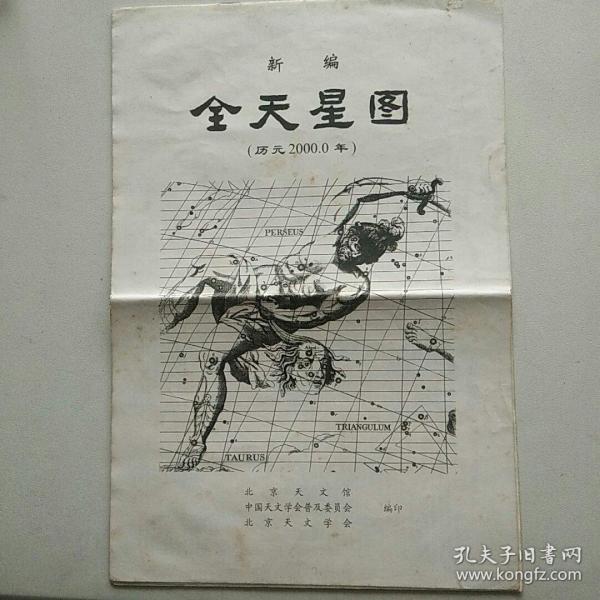 新编
全天星图
(历元2000.0年)
PERSEUS
TRIANGULUM
TAURUS
北京天文馆
中国天文学会普及委员会 编印
北京天文学会
孔夫子旧书网
www.kongfz.com